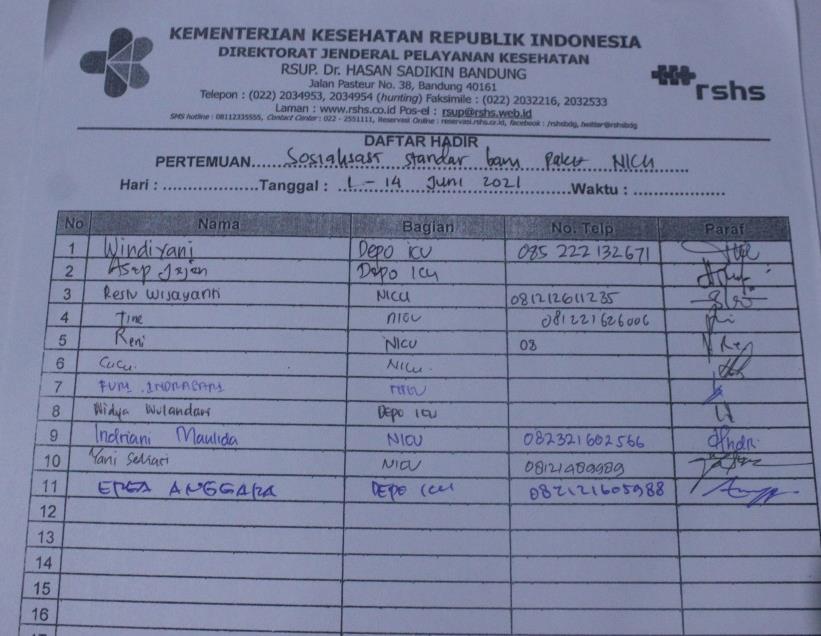 KEMENTERIAN KESEHATAN REPUBLIK INDONESIA
DIREKTORAT JENDERAL PELAYANAN KESEHATAN
RSUP. Dr. HASAN SADIKIN BANDUNG
Jalan Pasteur No. 38, Bandung 40161
Telepon : (022) 2034953, 2034954 (hunting) Faksimile : (022) 2032216, 2032533
Laman : www.rshs.co.id Pos-el : rsup@rshs.web.id
SMS hotline : 08112335555, Contact Center : 022 - 2551111, Reservasi Online : reservasi.rshs.co.id, facebook : /rshsbdg, twitter@rshsbdg
rshs
DAFTAR HADIR
PERTEMUAN.....Sosialisasi standar baru Paket NICU
Hari : .................Tanggal : 1 - 14 Juni 2021 Waktu : .................
No Nama Bagian No. Telp Paraf
1 Windiyani Depo ICU 085 222 132671
2 Asep Depo ICU
3 Restu Wisayanti NICU 081212611235
4 Tine NICU 081221626006
5 Reni NICU 08
6 Cucu NICU
7 NICU
8 Widya Wulandari Depo ICU
9 Indriani Maulida NICU 082321602566
10 Yani NICU 08121489989
11 ERGA ANGGARA DEPO ICU 082121605988
12
13
14
15
16